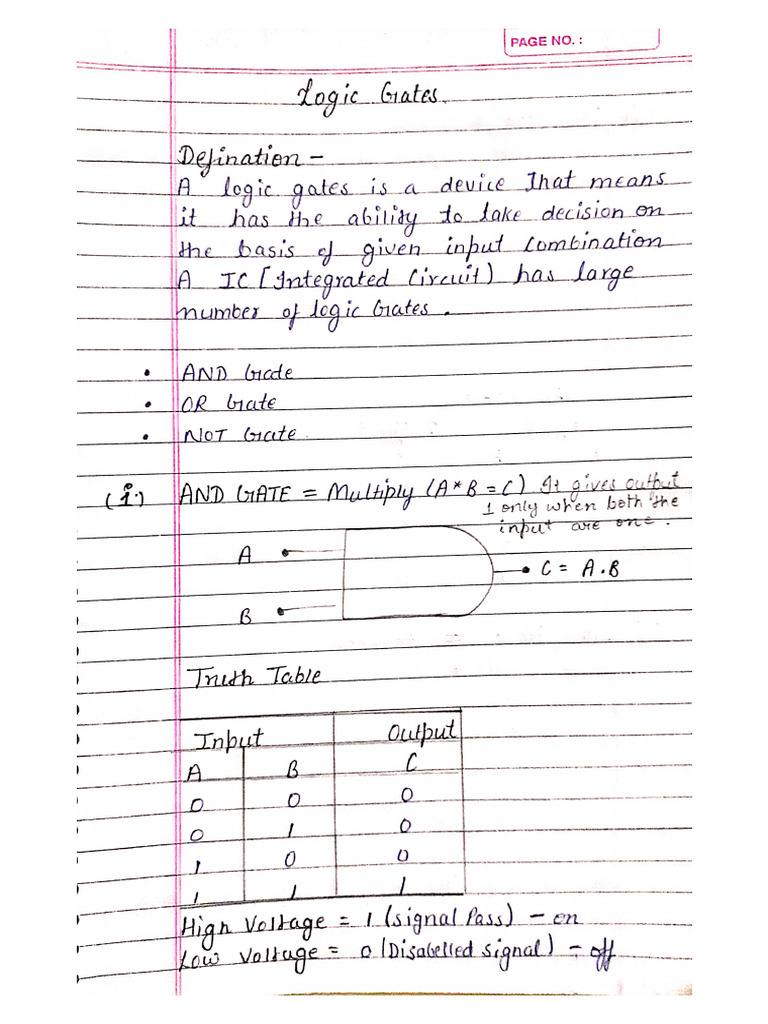 PAGE NO. :
Logic Gates.
Defination -
A logic gates is a device That means
it has the ability to take decision on
the basis of given input Combination
A IC [Integrated Circuit) has large
number of logic Gates.
• AND Gate
• OR Gate
• NOT Gate
(i.) AND GATE = Multiply (A*B = C) It gives output
1 only when both the
input are one.
A
C = A.B
B
Truth Table
Input Output
A B C
0 0 0
0 1 0
1 0 0
1 1 1
High Voltage = 1 (signal Pass) - on
Low Voltage = 0 (Disabelled signal) - off